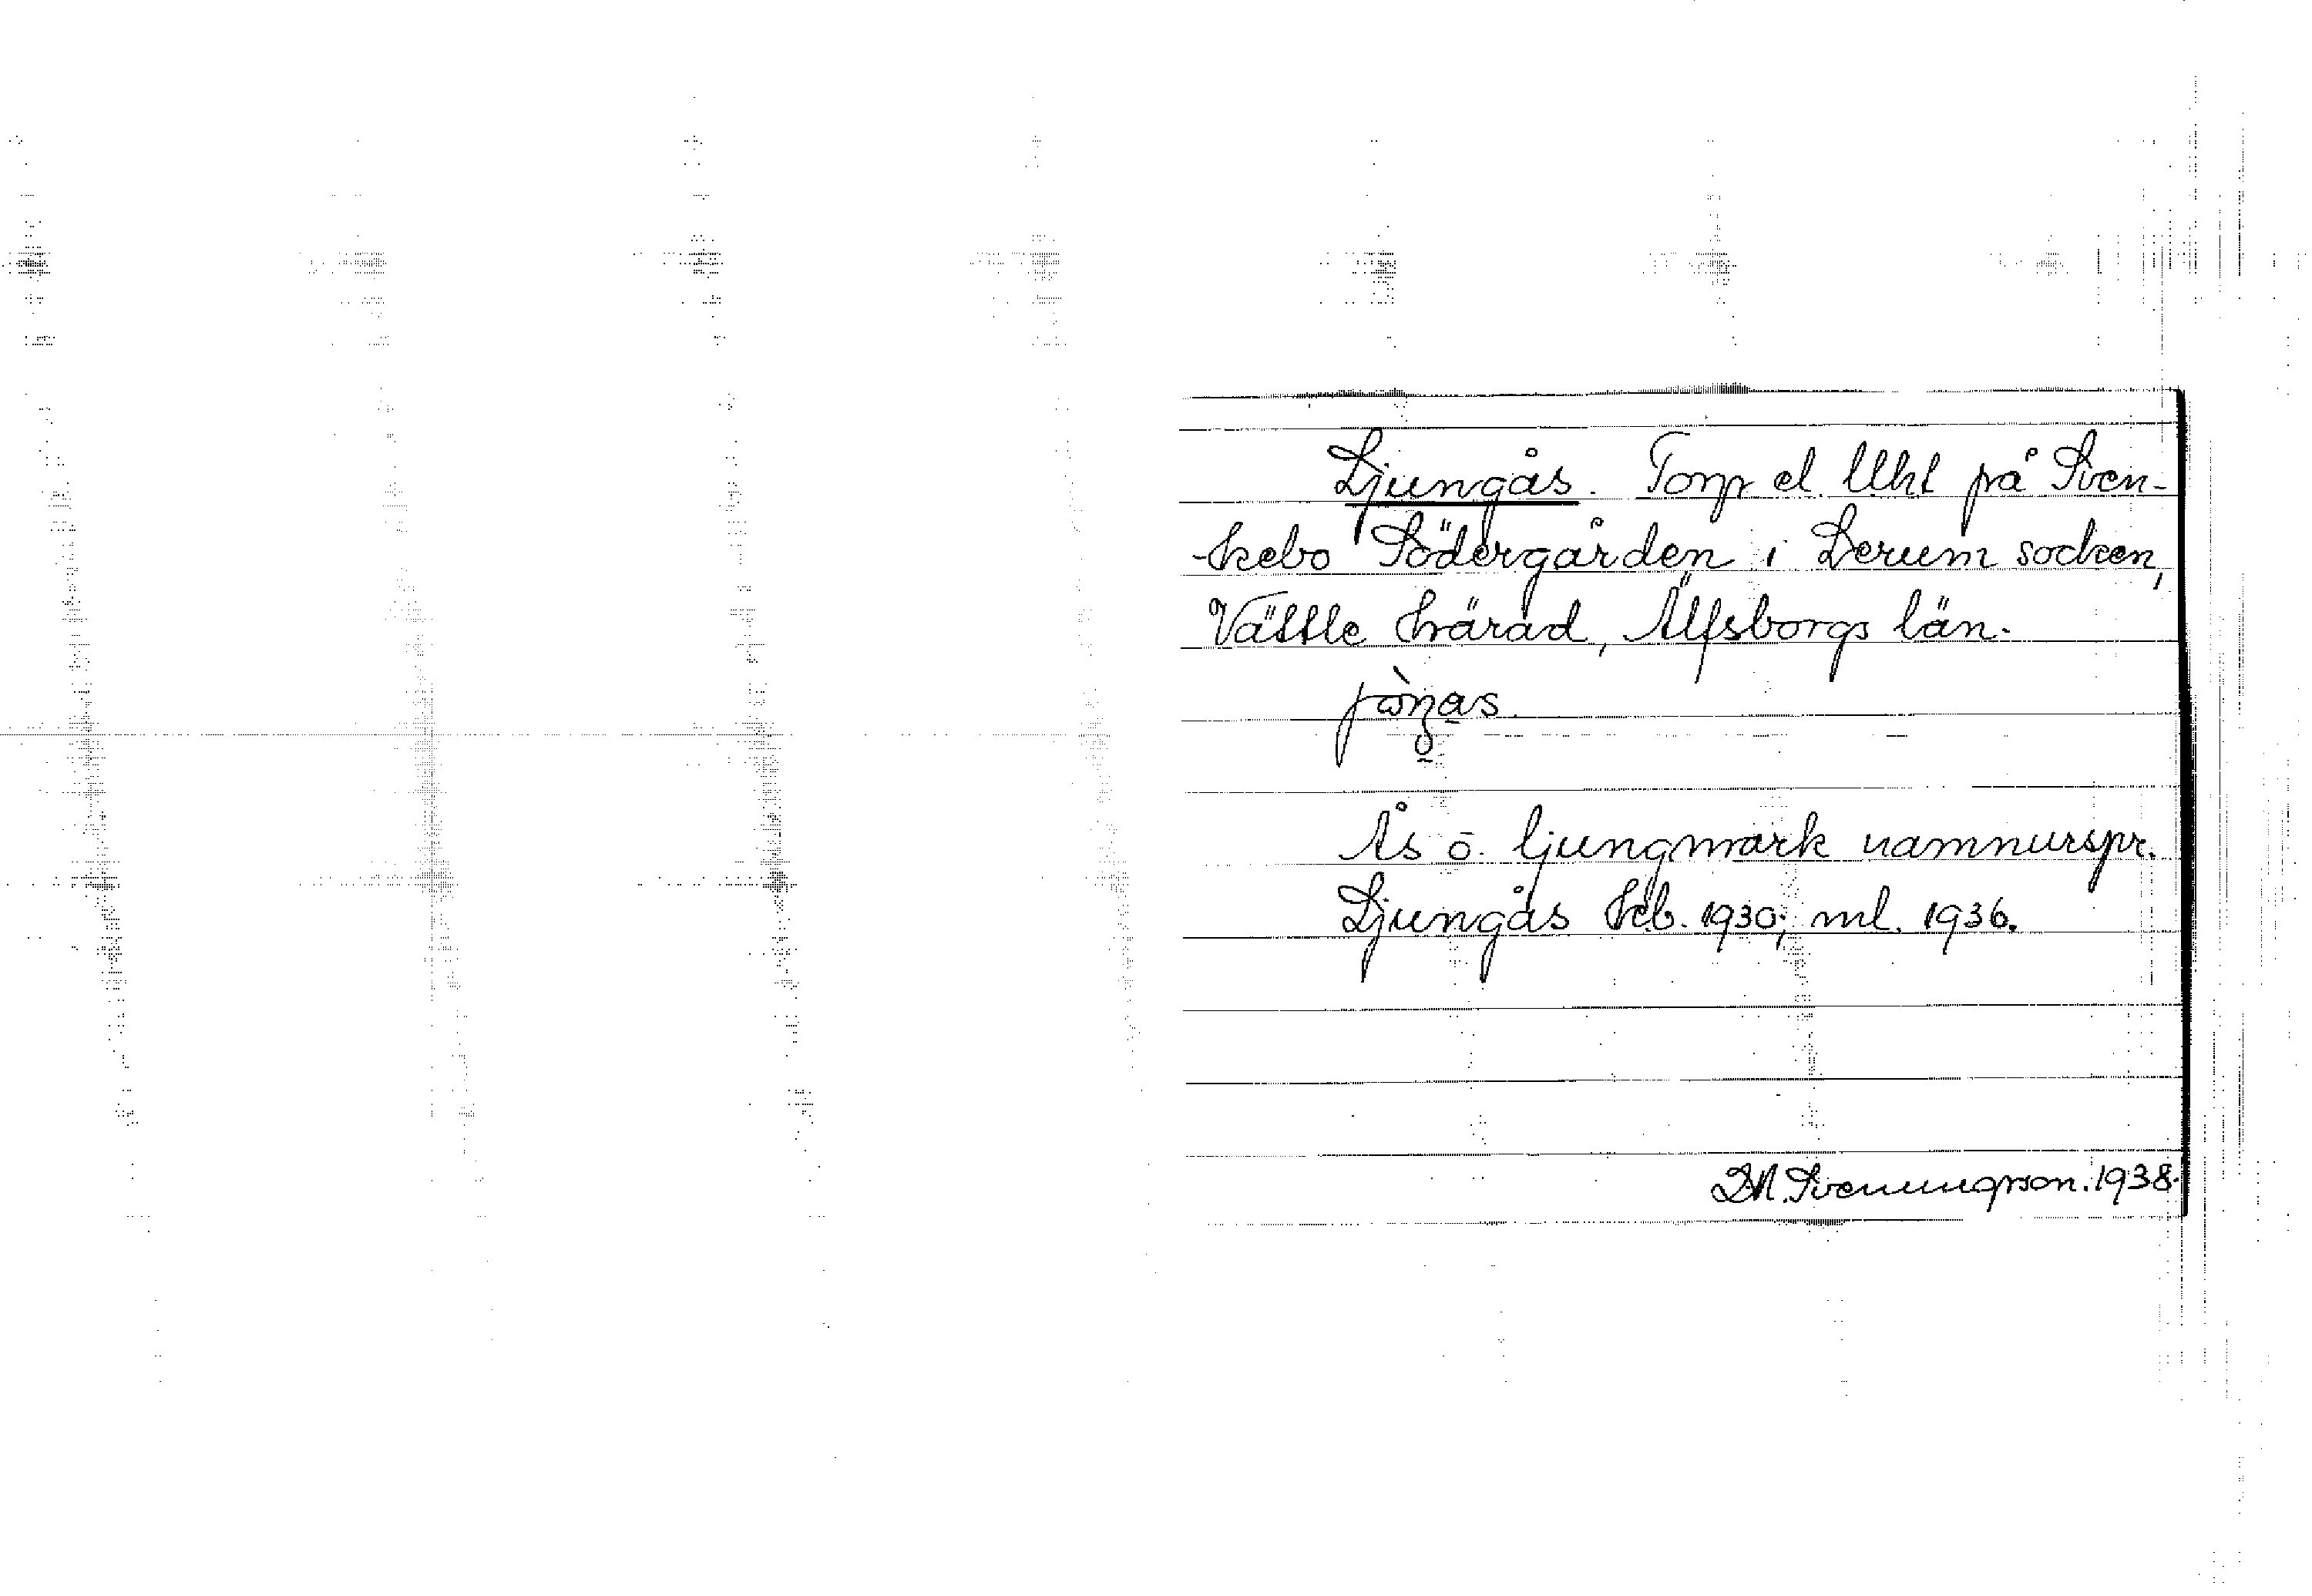 Ljungås. Torp el. lht på Sven-
skebo Södergården i Lerum socken,
Vättle härad, Älfsborgs län.
Ås o. ljungmark namnurspr.
Ljungås hfb. 1930; ml. 1936.
1938.